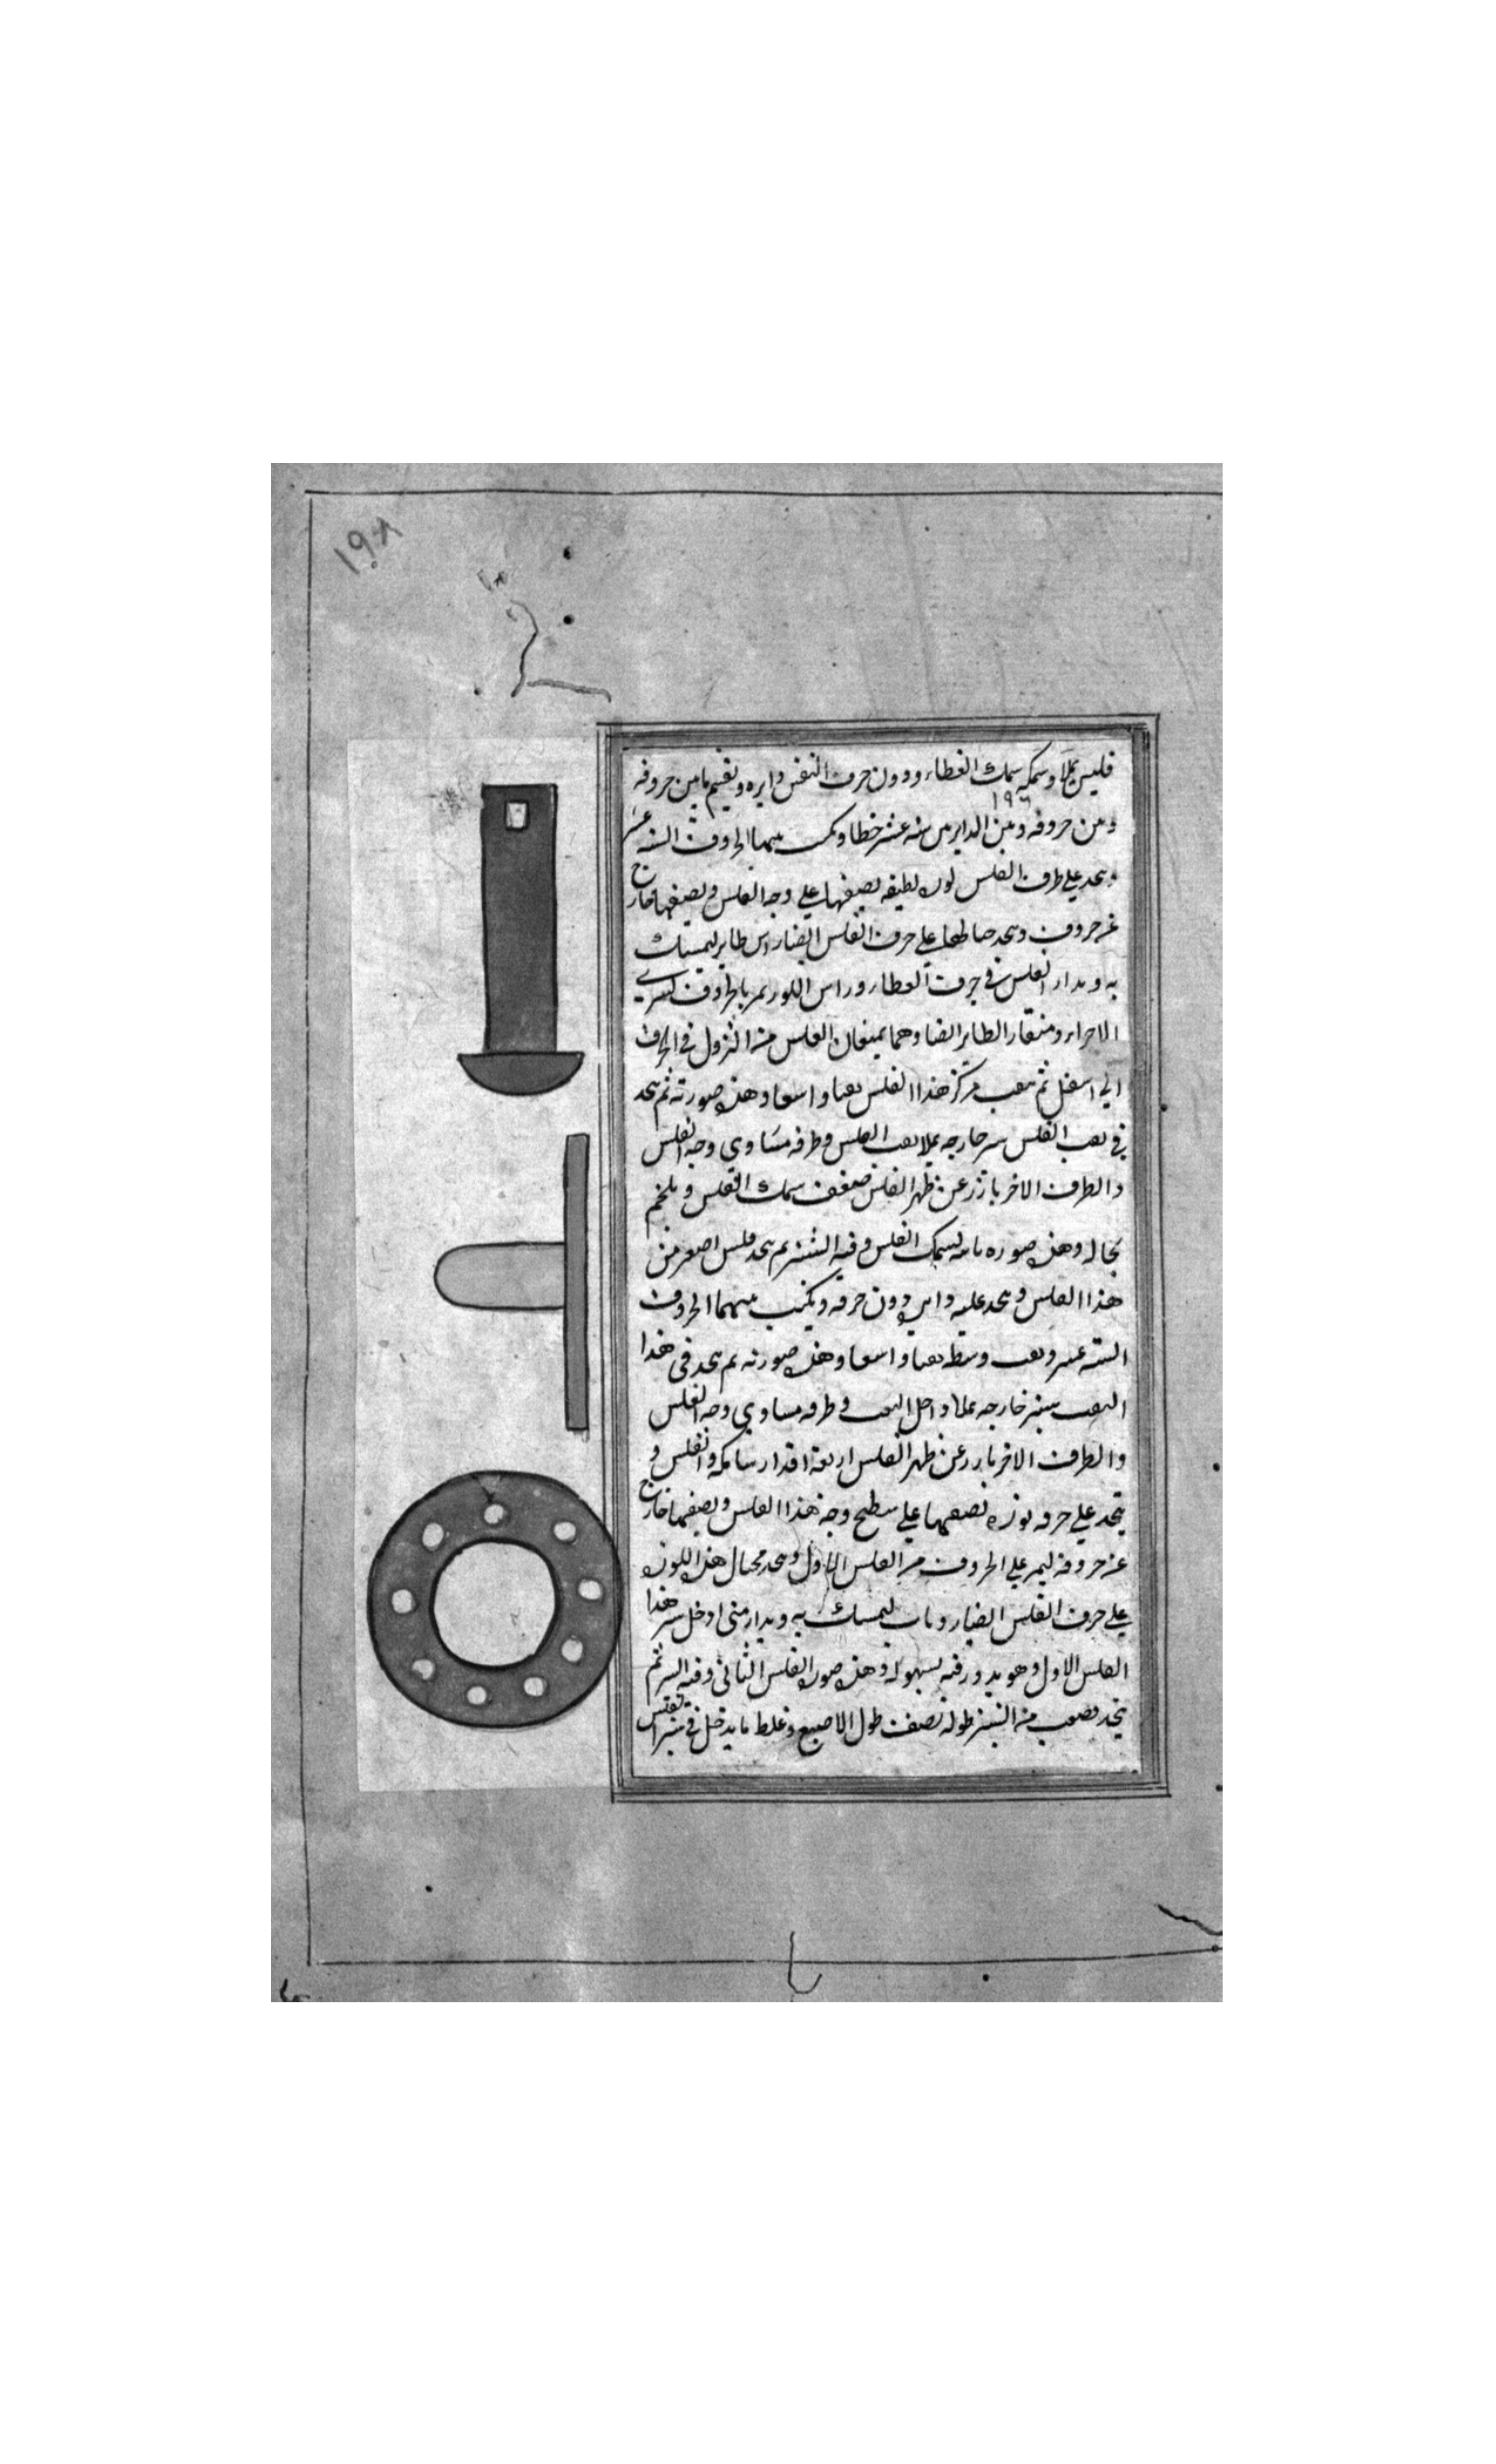 ١٩٨
فليس يملا وسمكه سمك الغطاء ودون حرف النقش دايره ويقسم ما بين حروفه
١٩٦
وبين حروفه وبين الدايره سته عشر خطا ويكتب بينهما الحروف السته عشر
ويتحد على طرف الفلس لوزه لطيفه نصفها على وجه الفلس ونصفها خارج
عن حروف ويتحد على حرف الفلس ايضا راس طاير ليمسك
به ويدار الفلس في حرف الغطاء وراس اللوز يمر بالحروف
الاجزاء ومنقار الطاير ايضا وهما يمنعان الفلس من النزول في الحرف
الي اسفل ثم يثقب مركز هذا الفلس ثقبا واسعا وهذه صورته ثم يتحد
في ثقب الفلس خارجه يملا ثقب الفلس وطرفه مساوي وجه الفلس
والطرف الاخر بارز عن ظهر الفلس ضعف سمك الفلس ويلحم
بحاله وهذه صوره الفلس وفيه ثم يتحد فلس اصغر من
هذا الفلس ويتحد عليه دون حرفه ويكتب بينهما الحروف
السته عشر ويثقب وسطه ثقبا واسعا وهذه صورته ثم يتحد في هذا
الثقب خارجه يملا داخل الثقب وطرفه مساوي وجه الفلس
والطرف الاخر بارز عن ظهر الفلس اربعة اقدار سامكه والفلس و
يتحد على حرفه لوزه نصفها على سطح وجه هذا الفلس ونصفها خارج
عن حروفه ليمر على الحروف من الفلس الاول ويتحد محيال هذه اللوزه
على حرف الفلس ايضا ليمسك به ويدار متى ادخل هذا
الفلس الاول وهو يدور فيه بسهوله وهذه صورة الفلس الثاني وفيه ثم
يتحد قضيب من طوله نصف طول الاصبع وغلظ ما يدخل في